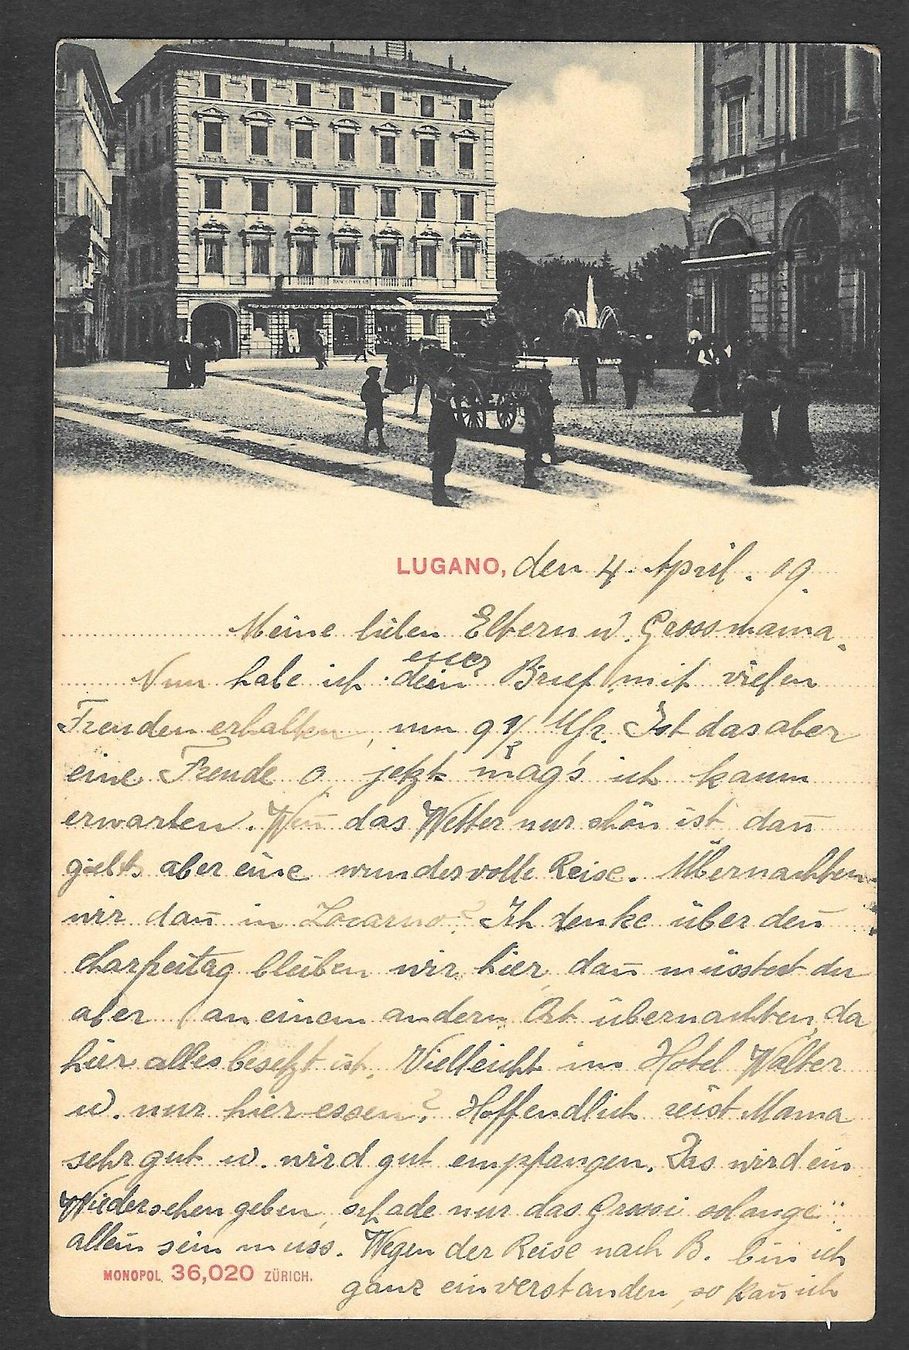 LUGANO, den 4. April. 09.
Meine lieben Eltern u. Grossmama.
euer
Nun habe ich dein Brief mit vielen
Freuden erhalten, um 9 Uhr. Ist das aber
eine Freude o, jetzt mag's ich kaum
erwarten. Weñ das Wetter nur schön ist dañ
giebt's aber eine wundervolle Reise. Übernachten
wir dañ in Locarno? Ich denke über den
Charfreitag bleiben wir hier, dañ müsstest du
aber an einem andern Ort übernachten, da
hier alles besetzt ist. Vielleicht im Hotel Walter
u. nur hier essen? Hoffendlich reist Mama
sehr gut u. wird gut empfangen. Das wird ein
Wiedersehen geben, schade nur das Grossi solange
allein sein muss. Wegen der Reise nach B. bin ich
MONOPOL 36,020 ZÜRICH.
ganz einverstanden, so kañ ich